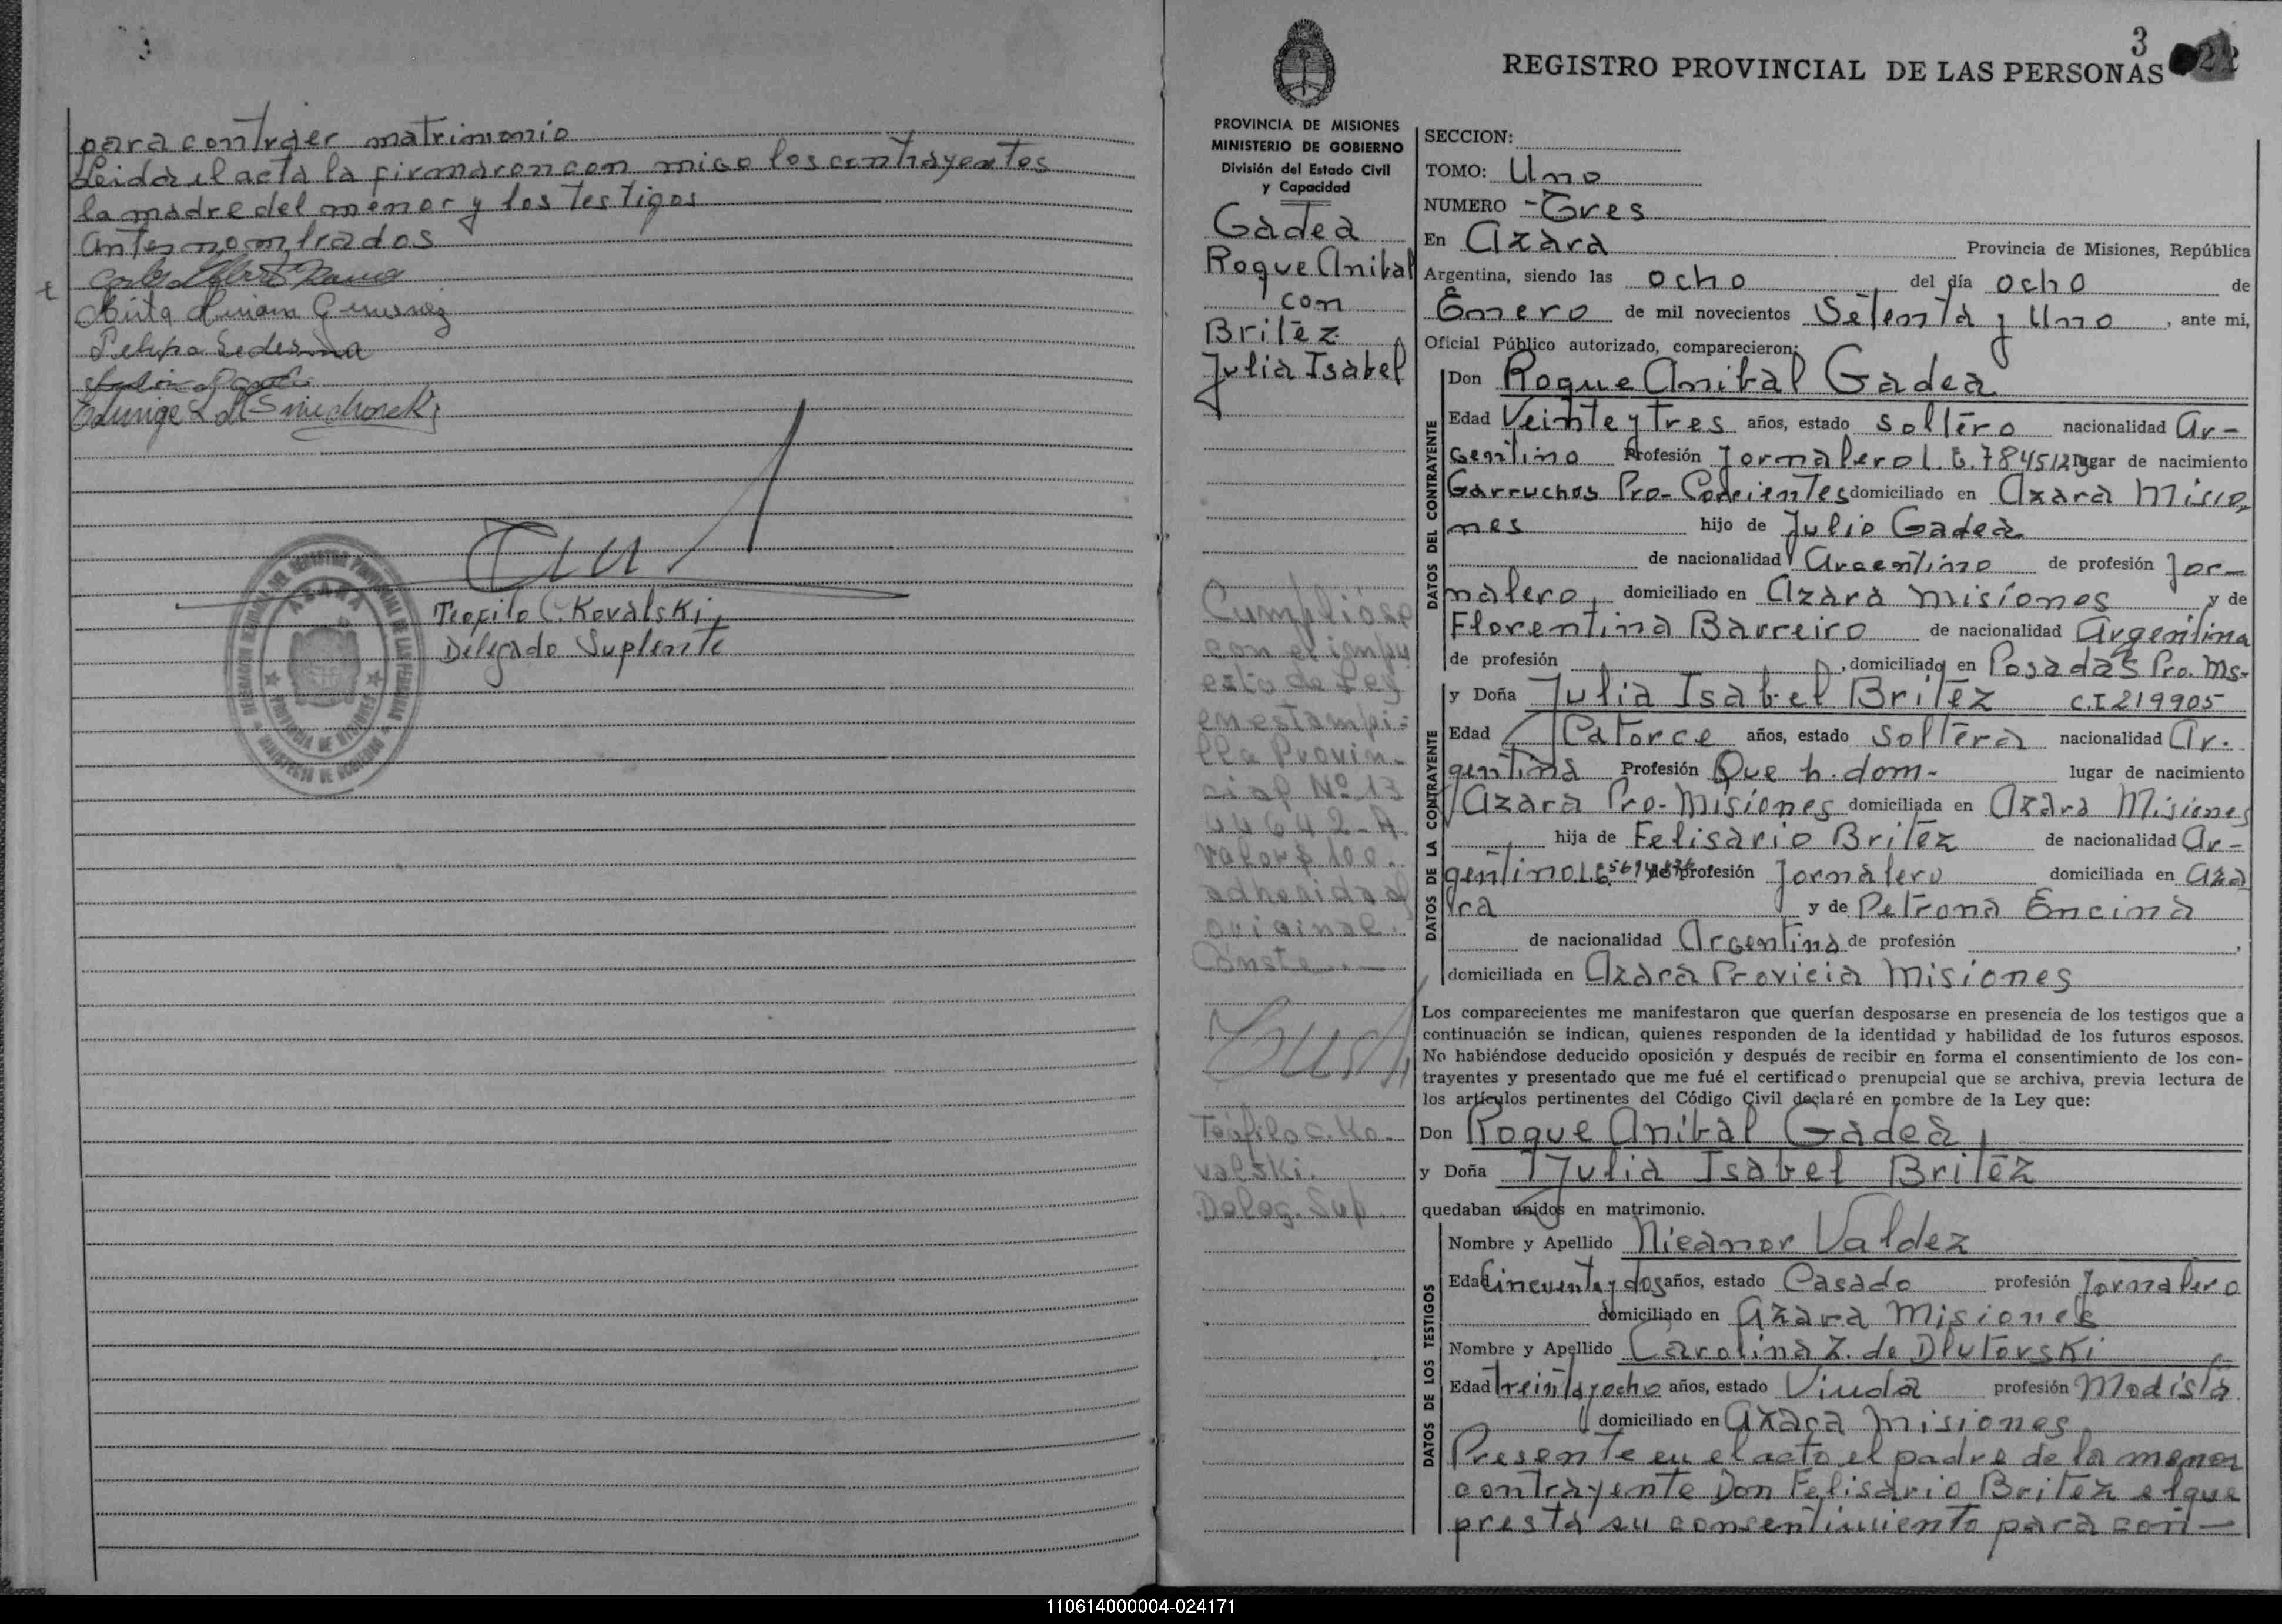 para contraer matrimonio
Leida el acta la firmaron con migo los contrayentes
la madre del menor y los testigos
antes nombrados
Mirta Miriam Gimenez
Ledesma
Teofilo C. Kovalski
Delegado Suplente
3
REGISTRO PROVINCIAL DE LAS PERSONAS
PROVINCIA DE MISIONES
MINISTERIO DE GOBIERNO
División del Estado Civil
y Capacidad
Gadea
Roque Anibal
con
Britez
Julia Isabel
Cumplióse
con el impu
esto de Ley
en estampi-
lla Provin-
cial Nº 13
44642-A
valor $ 100.
adherida al
original.
Conste.-
Teófilo C. Ko-
valski.
Deleg. Sup.
SECCION:
TOMO: Uno
NUMERO - Tres
En Azara Provincia de Misiones, República
Argentina, siendo las ocho del día ocho de
Enero de mil novecientos Setenta y Uno, ante mi,
Oficial Público autorizado, comparecieron:
DATOS DEL CONTRAYENTE
Don Roque Anibal Gadea
Edad Veinte y Tres años, estado soltero nacionalidad Ar-
gentino Profesión Jornalero L.E. 7845129 lugar de nacimiento
Garruchos Pro- Corrientes domiciliado en Azara Misio
nes hijo de Julio Gadea
de nacionalidad Argentino de profesión Jor-
nalero, domiciliado en Azara Misiones y de
Florentina Barreiro de nacionalidad Argentina
de profesión , domiciliado en Posadas Pro. Ms-
DATOS DE LA CONTRAYENTE
y Doña Julia Isabel Britez C.I 219905
Edad Catorce años, estado soltera nacionalidad Ar.
gentina Profesión Que h. dom- lugar de nacimiento
Azara Pro- Misiones domiciliada en Azara Misiones
hija de Felisario Britez de nacionalidad Ar-
gentino L.E. de profesión Jornalero domiciliada en Aza
ra y de Petrona Encina
de nacionalidad Argentina de profesión ,
domiciliada en Azara Provicia Misiones
Los comparecientes me manifestaron que querían desposarse en presencia de los testigos que a
continuación se indican, quienes responden de la identidad y habilidad de los futuros esposos.
No habiéndose deducido oposición y después de recibir en forma el consentimiento de los con-
trayentes y presentado que me fué el certificado prenupcial que se archiva, previa lectura de
los artículos pertinentes del Código Civil declaré en nombre de la Ley que:
Don Roque Anibal Gadea
y Doña Julia Isabel Britez
quedaban unidos en matrimonio.
DATOS DE LOS TESTIGOS
Nombre y Apellido Nicanor Valdez
Edad Cincuenta y dos años, estado Casado profesión Jornalero
domiciliado en Azara Misiones
Nombre y Apellido Carolina Z. de Dlutovski
Edad treinta y ocho años, estado Viuda profesión Modista
domiciliado en Azara Misiones
Presente en el acto el padre de la menor
contrayente Don Felisario Britez el que
presta su consentimiento para con-
110614000004-024171